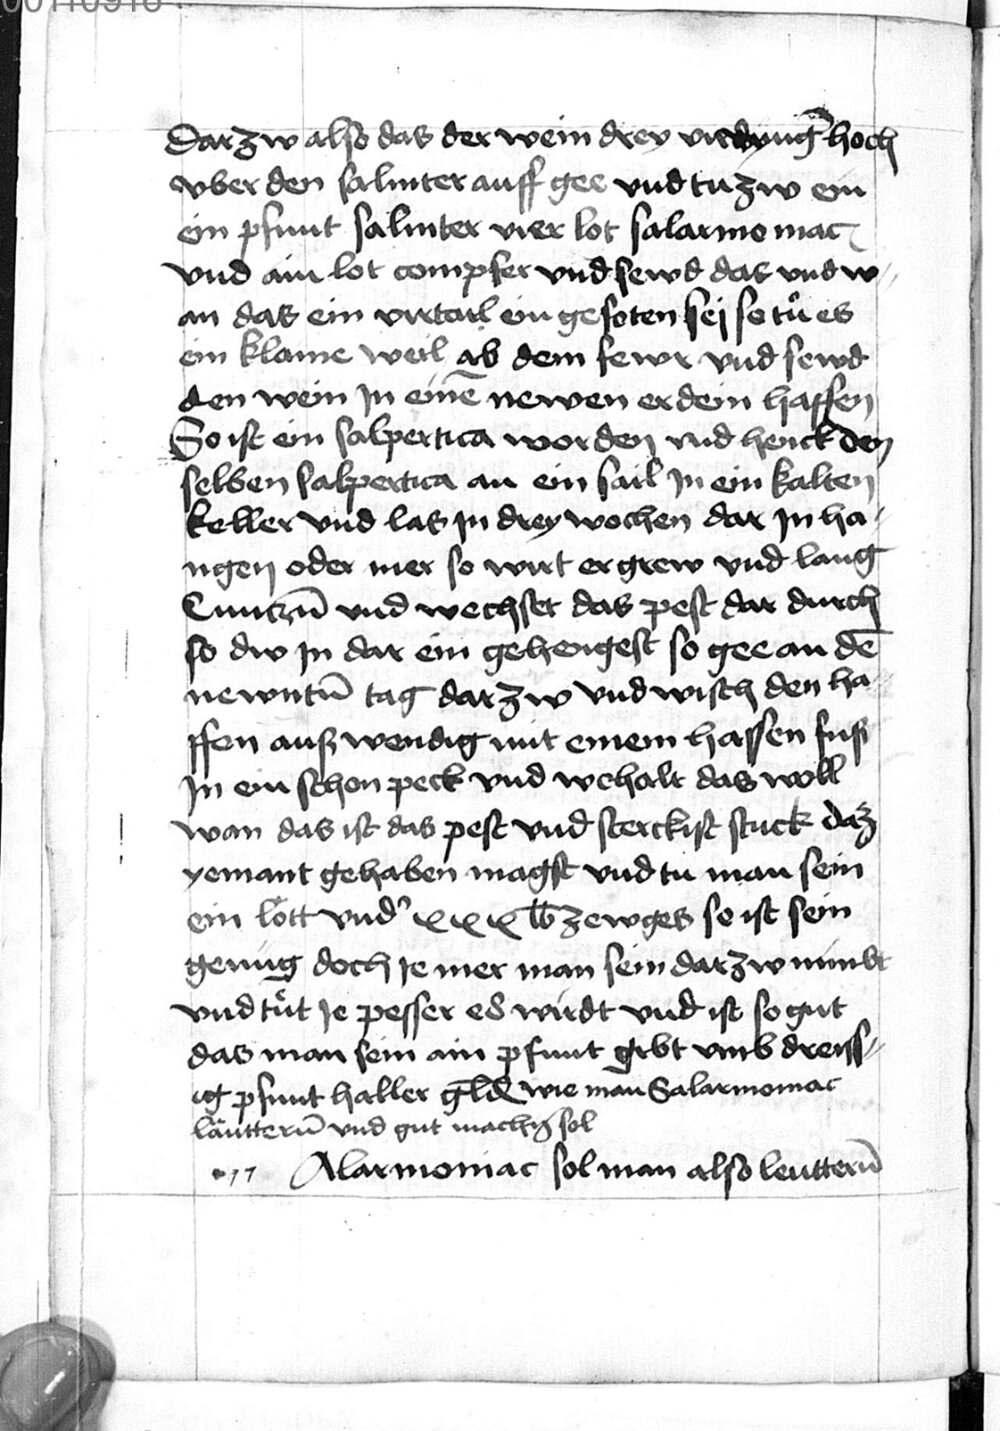 00110916
Darzw also das der wein drey virdung hoch
vber den saliniter auff gee vnd tu zw ein
ein pfunt saliniter vier lot salarmoniac
vnd ain lot compfer vnd sewd das vnd w
an das ein virtail ein gesoten sej so tů es
ein klaine weil ab dem fewr vnd sewd
den wein Jn einē newen erdein haffen
So ist ein salpertica worden vnd henck den
selben salpertica an ein sail Jn ein kalten
keller vnd las Jn drey wochen dar Jn ha
ngen oder mer so wirt er grew vnd laug
vnd wechset das pest dar durch
so dw Jn dar ein gehengest so gee an dē
newntn̄ tag darzw vnd wisch den ha
ffen auß wendig mit einem hassen fuß
Jn ein schon peck vnd wehalt das woll
wan das ist das pest vnd sterckist stuck daz
yemant gehaben magst vnd tu man sein
ein lött vnd xxx lb zewges so ist sein
genůg doch Je mer man sein darzw nimbt
vnd tůt Je pesser es wirdt vnd ist so gut
das man sein ain pfunt gibt vmb dreiss
ig pfunt haller wie man Salarmoniac
läuttern̄ vnd gut machen̄ sol
17 Alarmoniac sol man also leuttern̄